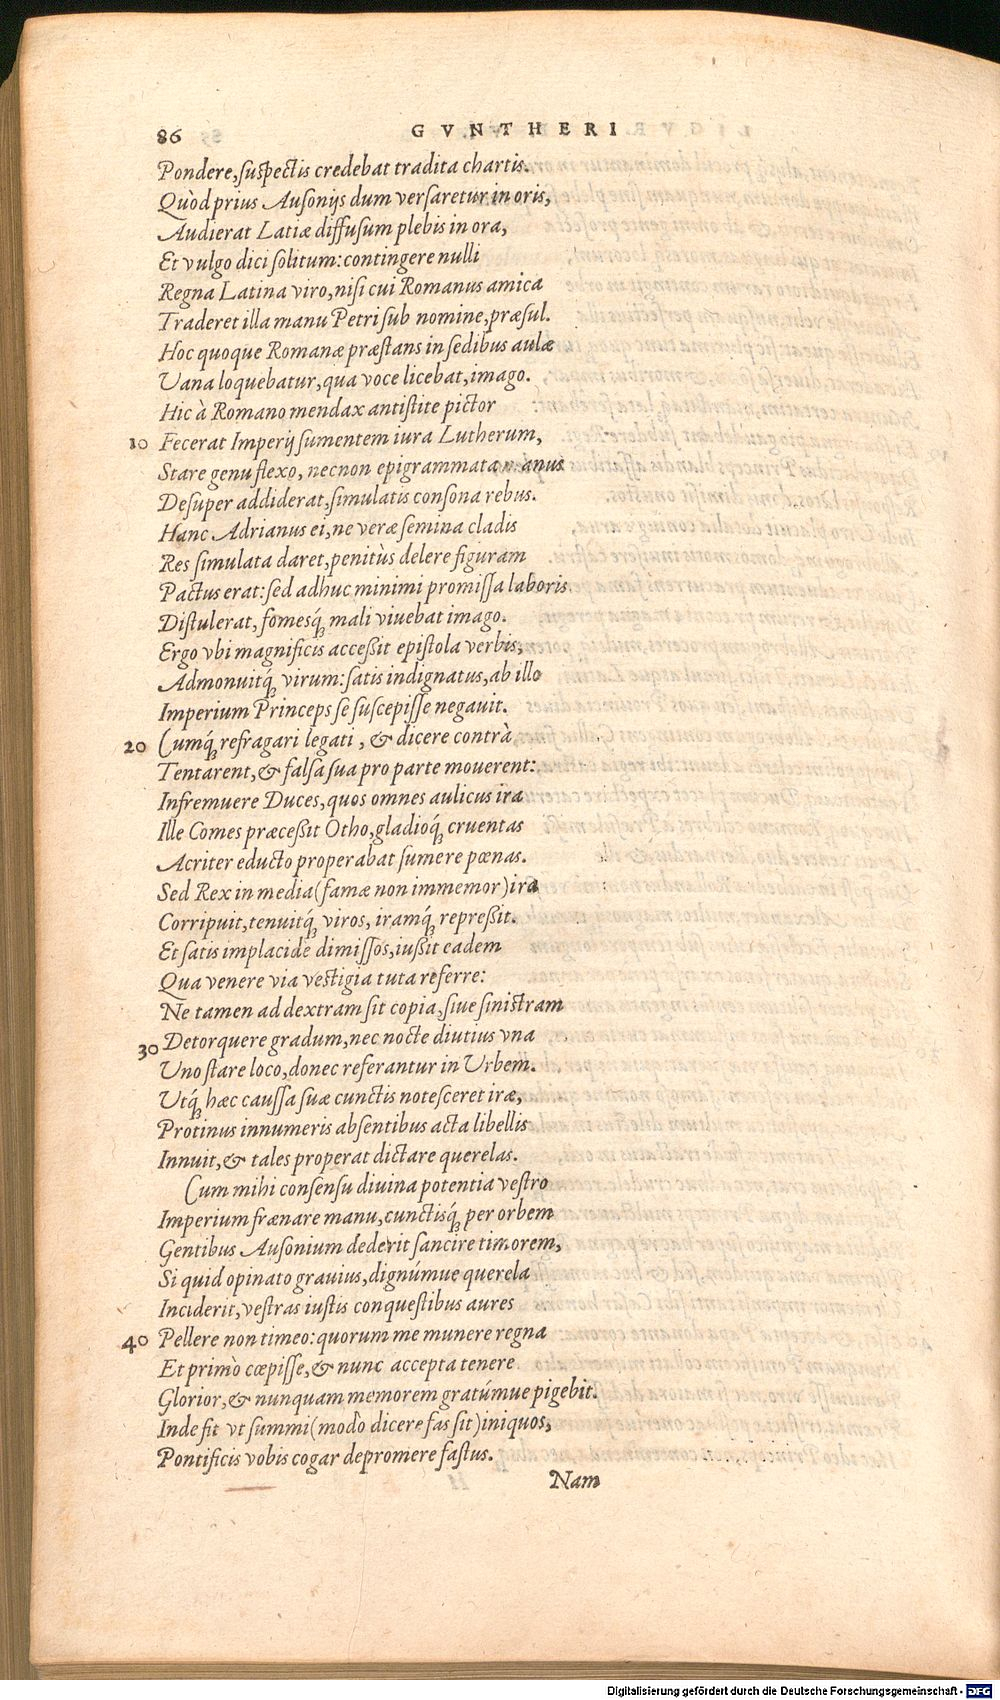 86 GVNTHERI
Pondere, suspectis credebat tradita chartis.
Quòd prius Ausonijs dum versaretur in oris,
Audierat Latiæ diffusum plebis in ora,
Et vulgo dici solitum: contingere nulli
Regna Latina viro, nisi cui Romanus amica
Traderet illa manu Petri sub nomine, præsul.
Hoc quoque Romanæ præstans in sedibus aulæ
Vana loquebatur, qua voce licebat, imago.
Hic à Romano mendax antistite pictor
10 Fecerat Imperij sumentem iura Lutherum,
Stare genu flexo, necnon epigrammata manus
Desuper addiderat, simulatis consona rebus.
Hanc Adrianus ei, ne veræ semina cladis
Res simulata daret, penitùs delere figuram
Pactus erat: sed adhuc minimi promissa laboris
Distulerat, fomesq́; mali viuebat imago.
Ergo vbi magnificis accessit epistola verbis,
Admonuitq́; virum: satis indignatus, ab illo
Imperium Princeps se suscepisse negauit.
20 Cumq́; refragari legati, & dicere contrà
Tentarent, & falsa sua pro parte mouerent:
Infremuere Duces, quos omnes aulicus ira
Ille Comes præcessit Otho, gladioq́; cruentas
Acriter educto properabat sumere pœnas.
Sed Rex in media (famæ non immemor) ira
Corripuit, tenuitq́; viros, iramq́; repressit.
Et satis implacidè dimissos, iussit eadem
Qua venere via vestigia tuta referre:
Ne tamen ad dextram sit copia, siue sinistram
30 Detorquere gradum, nec nocte diutius vna
Uno stare loco, donec referantur in Urbem.
Utq́; hæc caussa suæ cunctis notesceret iræ,
Protinus innumeris absentibus acta libellis
Innuit, & tales properat dictare querelas.
Cum mihi consensu diuina potentia vestro
Imperium frænare manu, cunctisq́; per orbem
Gentibus Ausonium dederit sancire timorem,
Si quid opinato grauius, dignúmue querela
Inciderit, vestras iustis conquestibus aures
40 Pellere non timeo: quorum me munere regna
Et primò cœpisse, & nunc accepta tenere
Glorior, & nunquam memorem gratúmue pigebit.
Inde fit vt summi (modò dicere fas sit) iniquos,
Pontificis vobis cogar depromere fastus.
Nam
Digitalisierung gefördert durch die Deutsche Forschungsgemeinschaft - DFG